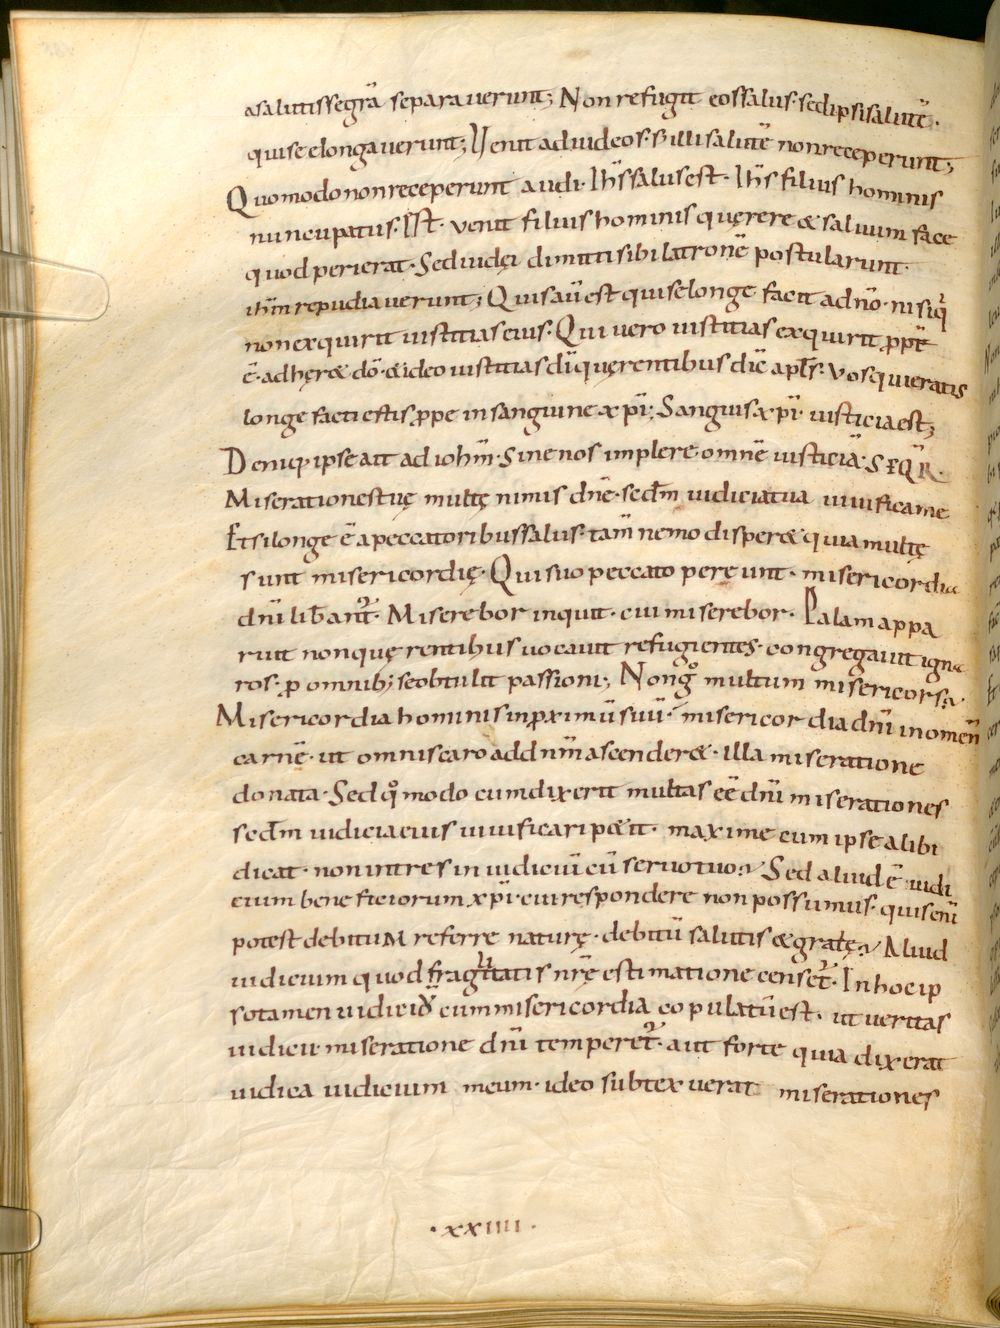 a salutis se gra᷎ separauerunt; Non refugit eos salus· sed ipsi salutē·
qui se elongauerunt; Uenit ad iudeos· s; illi salutē non receperunt;
Quomodo non receperunt audi· Ihs̄ salus est· Ihs̄ filius hominis
nuncupatus· Ist̄· venit filius hominis quęrere & saluum face
quod perierat· Sed iudęi dimitti sibi latronē postularunt·
ihm̄ repudiauerunt; Quis aū est qui se longe facit a dn̄o· nisi q̄
non exquirit iustitias eius· Qui uero iustitias exquirit ꝓpt̄
ē· adhęr& dō· & ideo iustitias dī quęrentibus dīc apl̄s· Vos qui eratis
longe facti estis ꝓpe in sanguine xp̄i; Sanguis xp̄i iusticia est;
Deniq; ipse ait ad iohm̄· Sine nos implere omnē iusticiā· SEQR̄
Miserationes tuę multę nimis dn̄e· secd̄m iudicia tua uiuifica me
Et si longe ē a peccatoribus salus· tam̄ nemo disper& quia multę
sunt misericordię· Qui suo peccato pereunt· misericordia
dn̄i lib̄ant᷑· Miserebor inquit· cui miserebor· Palam appa
ruit non quęrentibus uocauit refugientes· congregauit igna
ros· ꝓ omnib; se obtulit passioni; Non g° multum misericors?
Misericordia hominis in ꝓximū suū· misericordia dn̄i in omēn
carnē· ut omnis caro ad dn̄m ascender&· illa miseratione
donata· Sed q°modo cum dixerit multas eē dn̄i miserationes
secd̄m iudicia eius uiuificari p&it· maxime cum ipse alibi
dicat· non intres in iudiciū cū seruo tuo? Sed aliud ē iudi
cium beneficiorum xp̄i· cui respondere non possumus· quis eni̅
potest debituM referre naturę· debitū salutis & gratę? Aliud
iudicium quod fragilitatis nr̄ę estimatione censet᷑· In hoc ip
so tamen iudiciū cum misericordia copulatū est· ut ueritas
iudicii miseratione dn̄i temperet᷑· aut forte quia dixerat
iudica iudicium meum· ideo subtexuerat miserationes
·xxiiii·